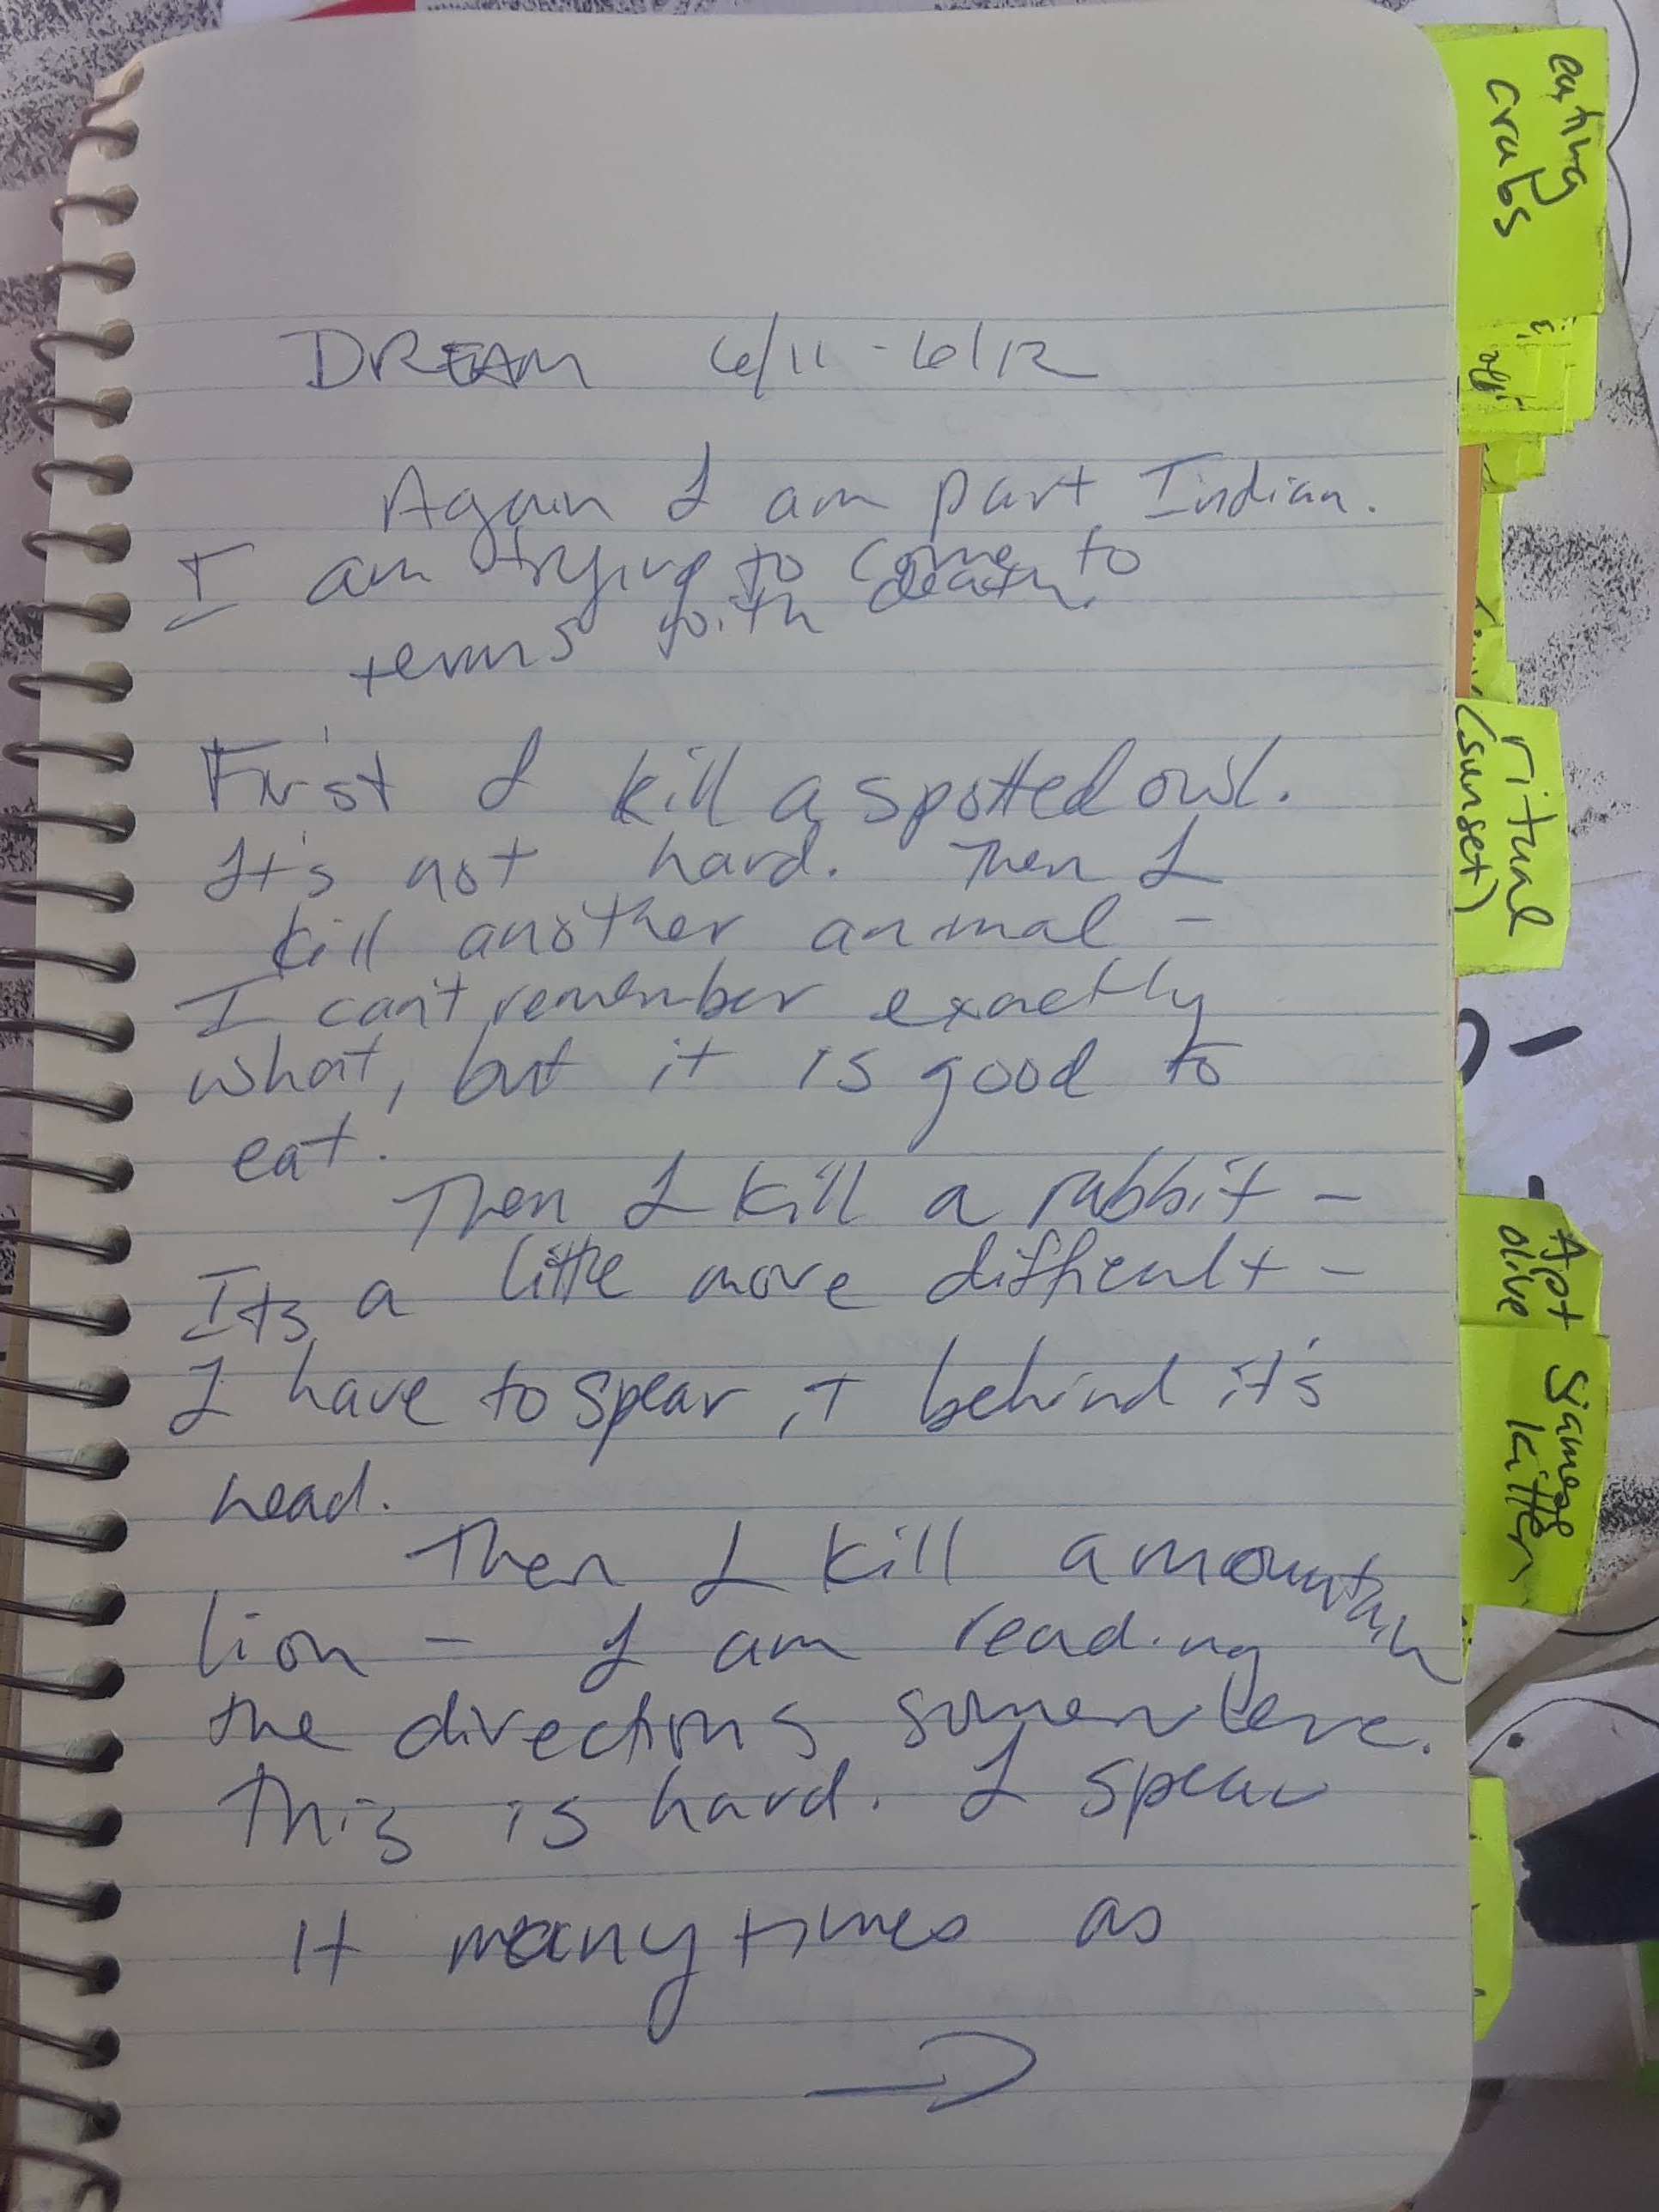 DREAM 6/11 - 6/12
Again I am part Indian.
I am trying to come to
terms with death.
First I kill a spotted owl.
It's not hard. Then I
kill another animal -
I can't remember exactly
what, but it is good to
eat.
Then I kill a rabbit -
Its a little more difficult -
I have to spear it behind it's
head.
Then I kill a mountain
lion - I am reading
the directions somewhere.
This is hard. I spear
it many times as
eating
crabs
ritual
(sunset)
Apt
olive
Siamese
kitten